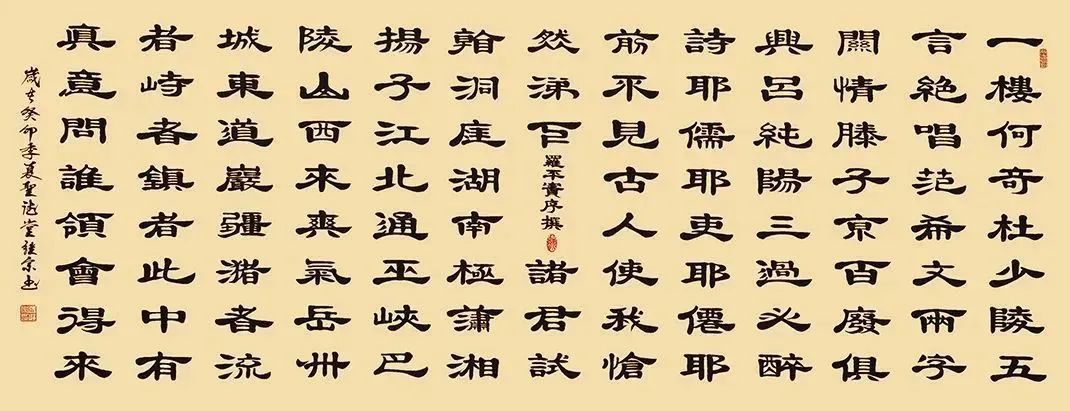 一樓何奇杜少陵五
言絕唱范希文兩字
關情滕子京百廢俱
興呂純陽三過必醉
詩耶儒耶吏耶僊耶
前不見古人使我愴
然涕下
羅平竇序撰
諸君試
看洞庭湖南極瀟湘
揚子江北通巫峽巴
陵山西來爽氣岳州
城東道巖疆瀦者流
者峙者鎮者此中有
真意問誰領會得來
歲在癸卯季夏聖堂書